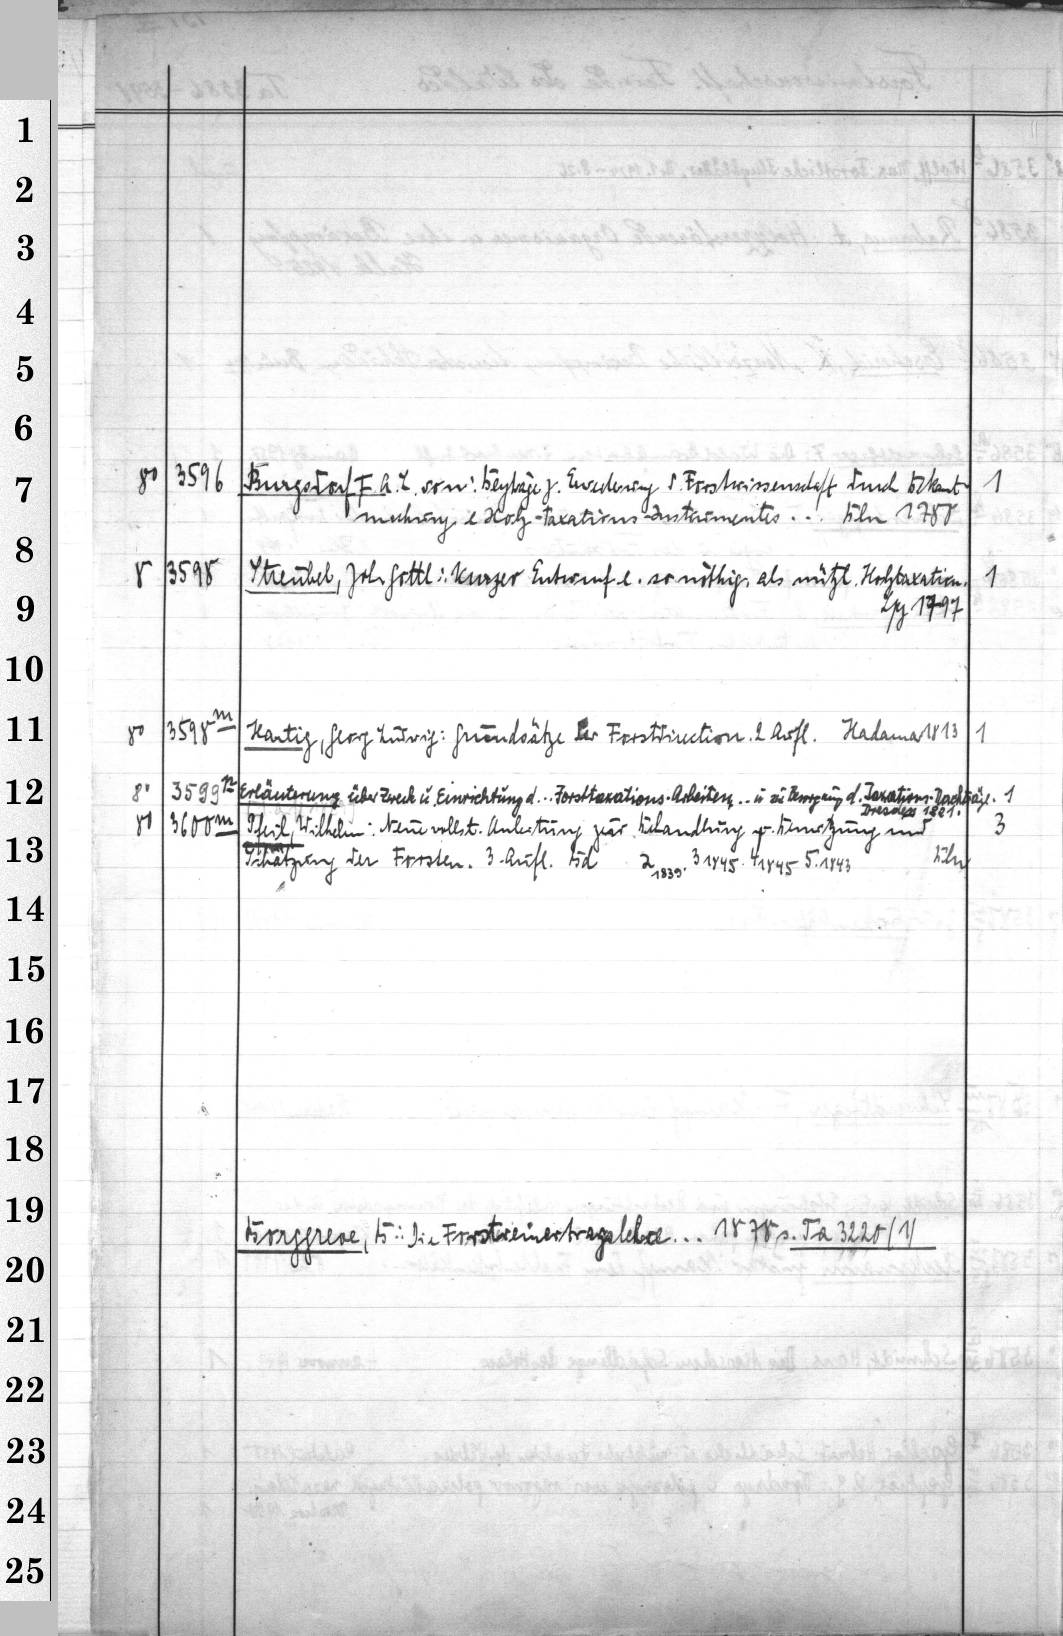 1
2
3
4
5
6
7
8
9
10
11
12
13
14
15
16
17
18
19
20
21
22
23
24
25
8° 3596 Burgsdorf F. A. L. von: Beyträge z. Erweiterung d. Forstwissenschaft durch Bekannt- 1
machung e. Holz-Taxations-Instrumentes... Bln 1780
8 3598 Streubel, Joh. Gottl.: Kurzer Entwurf e. so nöthig. als nützl. Holztaxation. 1
Lpz 1797
8° 3598m Hartig, Georg Ludwig: Grundsätze der Forstdirection. 2 Aufl. Hadamar 1813 1
8° 3599n Erläuterung über Zweck u. Einrichtung d... Forsttaxations-Arbeiten... u. zu Besorgung d. Taxations-Nachträge. 1
Dresden 1821.
8° 3600m Pfeil, Wilhelm: Neue vollst. Anleitung zur Behandlung Benutzung und 3
Schätzung der Forsten. 3. Aufl. Bd 2 1839. 3 1845. 4 1845 5. 1843 Bln
Borggreve, B.: Die Forstreinertragslehre... 1878 s. Ta 3220/1/